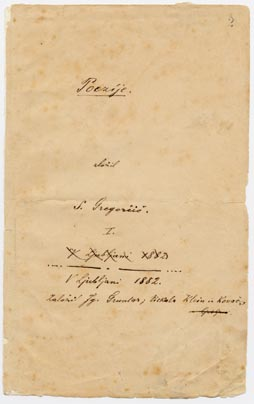 Poezije.
zložil
S. Gregorčič.
I.
V Ljubljani 1882
V Ljubljani 1882.
Založil Jg. Gruntar, tiskala Klein in Kovač.